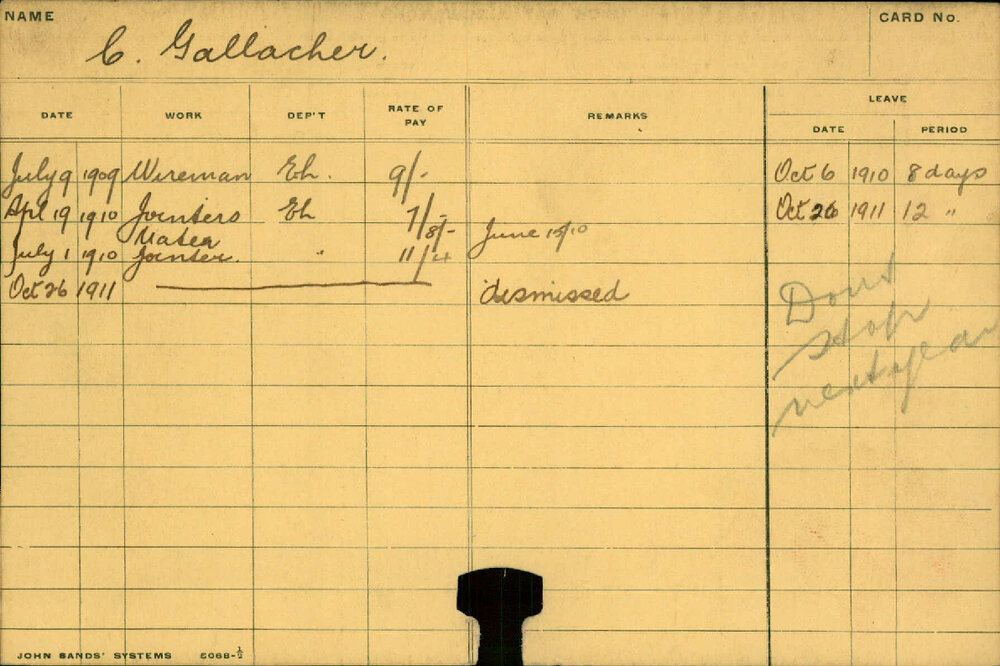 NAME
CARD No.
C. Gallacher.
DATE WORK DEP'T RATE OF PAY REMARKS LEAVE
DATE PERIOD
July 9 1909 Wireman Eh. 9/- Oct 6 1910 8 days
Apl 19 1910 Jointers Eh 7/- Oct 26 1911 12 "
Mates 8/- June 15/10
July 1 1910 Jointer. " 11/4
Oct 26 1911 dismissed
Dont
stop
next year
JOHN SANDS' SYSTEMS 5068-½